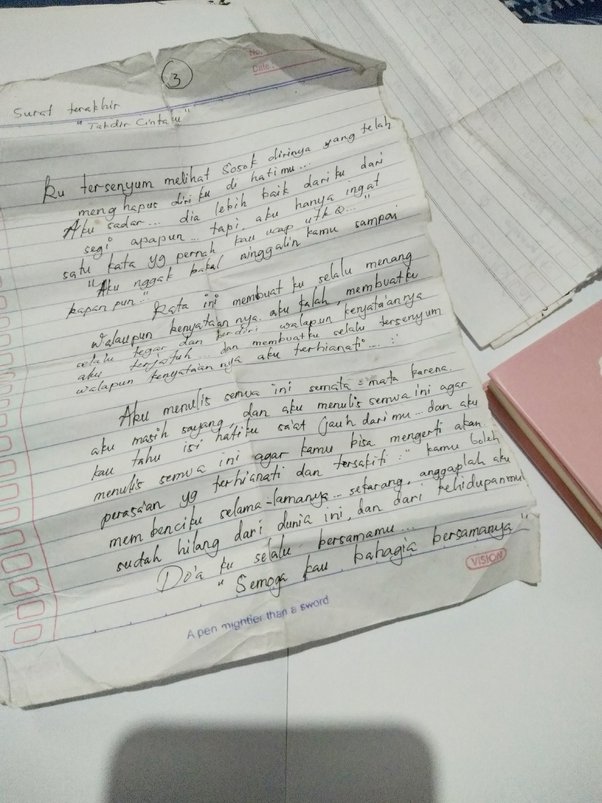 3
No.
Date.
Surat terakhir
"Takdir Cintaku"
Ku tersenyum melihat sosok dirinya yang telah
menghapus diri ku di hatimu...
Aku sadar... dia lebih baik dariku dari
segi apapun... tapi, aku hanya ingat
satu kata yg pernah kau ucap utk Q..."
"Aku nggak bakal ninggalin kamu sampai
kapan pun..."
Kata ini membuat ku selalu menang
walaupun kenyata'an nya. aku kalah, membuatku
selalu tegar dan berdiri walapun kenyata'annya
aku terjatuh... dan membuatku selalu tersenyum
walapun kenyata'an nya aku terhianati...
Aku menulis semua ini semata-mata karena
aku masih sayang, dan aku menulis semua ini agar
kau tahu isi hatiku sa'at jauh darimu... dan aku
menulis semua ini agar kamu bisa mengerti akan
perasa'an yg terhianati dan tersakiti." kamu boleh
membenciku selama-lamanya... sekarang, anggaplah aku
sudah hilang dari dunia ini, dan dari kehidupanmu
Do'a ku selalu bersamamu...
"Semoga kau bahagia bersamanya"
VISION
A pen mightier than a sword